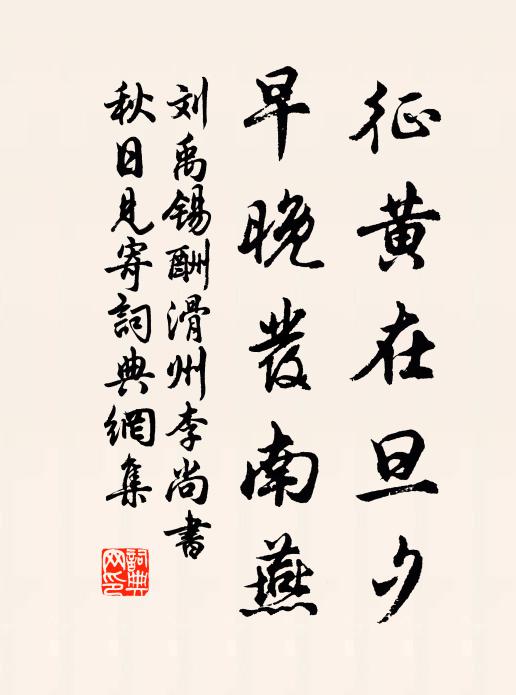 征黄在旦夕
早晚發南燕
刘禹锡酬滑州李尚書
秋日見寄詞典網集
詞典网印